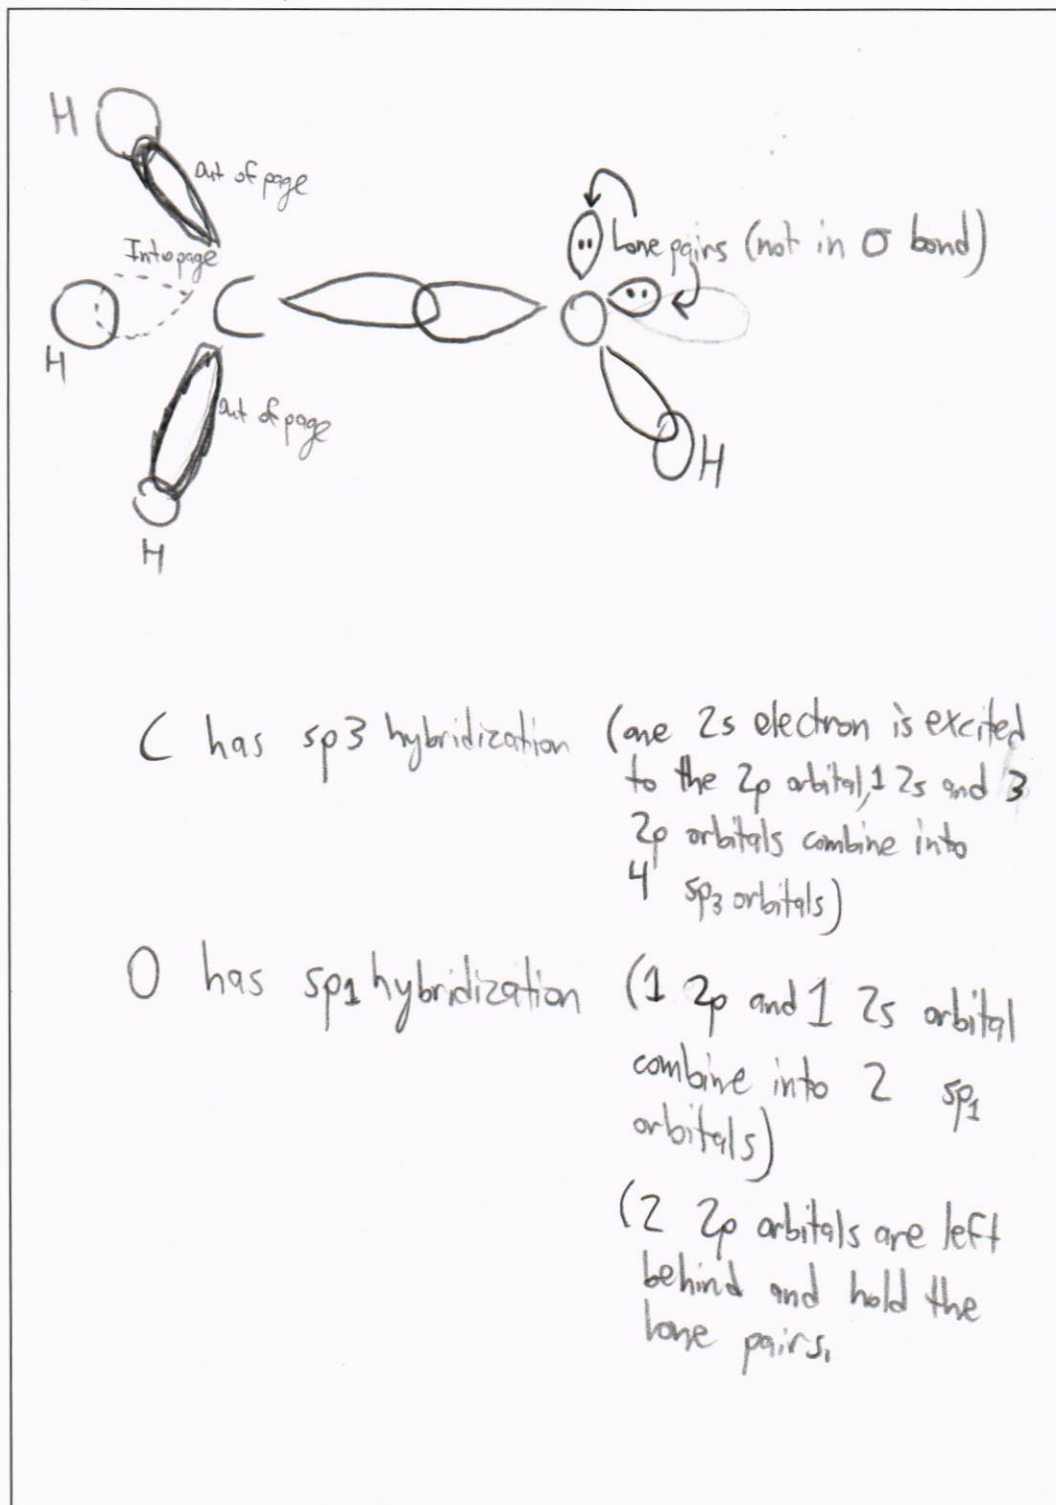 H
Out of page
Into page
Lone pairs (not in σ bond)
C
O
H
Out of page
H
H
C has sp3 hybridization (one 2s electron is excited
to the 2p orbital, 1 2s and 3
2p orbitals combine into
4 sp3 orbitals)
O has sp1 hybridization (1 2p and 1 2s orbital
combine into 2 sp1
orbitals)
(2 2p orbitals are left
behind and hold the
lone pairs.